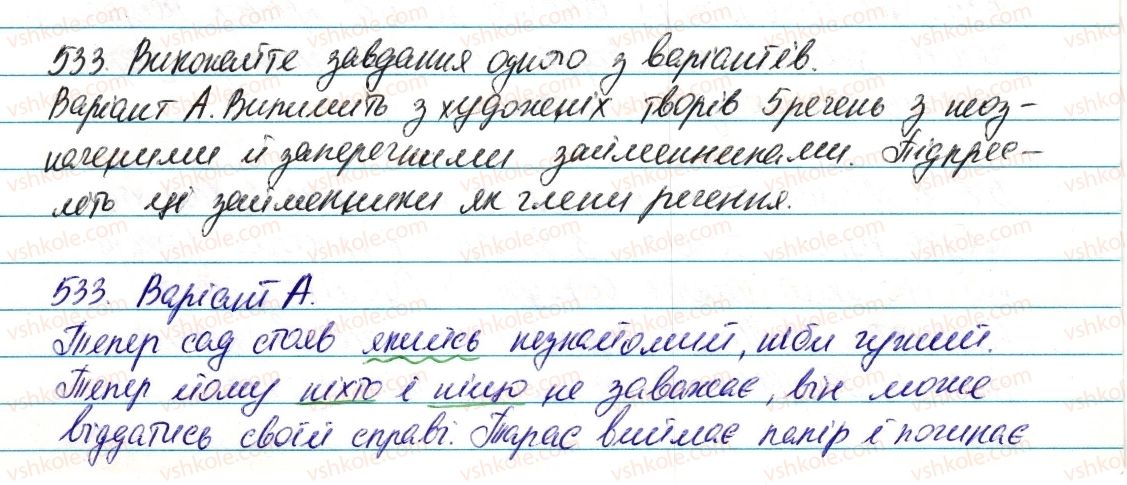 533. Виконайте завдання одного з варіантів.
Варіант А. Випишіть з художніх творів 5 речень з неоз-
наченими й заперечними займенниками. Підкрес-
літь ці займенники як члени речення.
533. Варіант А.
Тепер сад стояв якийсь незнайомий, ніби чужий.
Тепер йому ніхто і ніщо не заважає, він може
віддатись своїй справі. Тарас виймає папір і починає